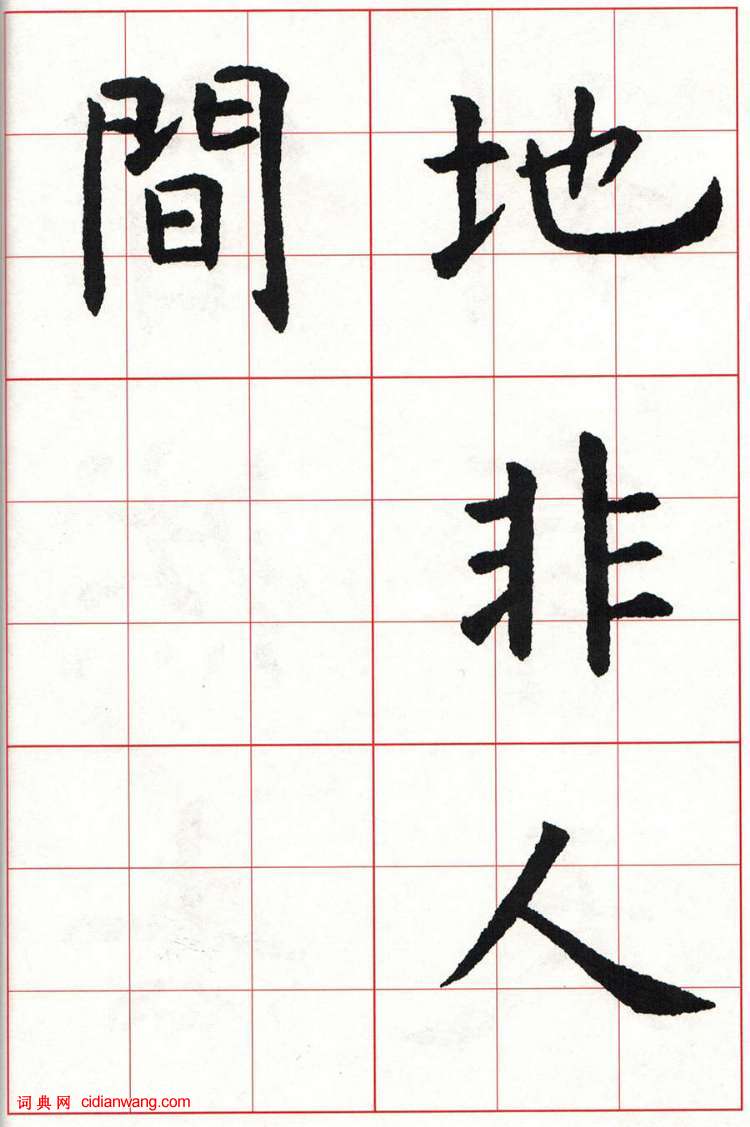 地非人
間
词典网 cidianwang.com